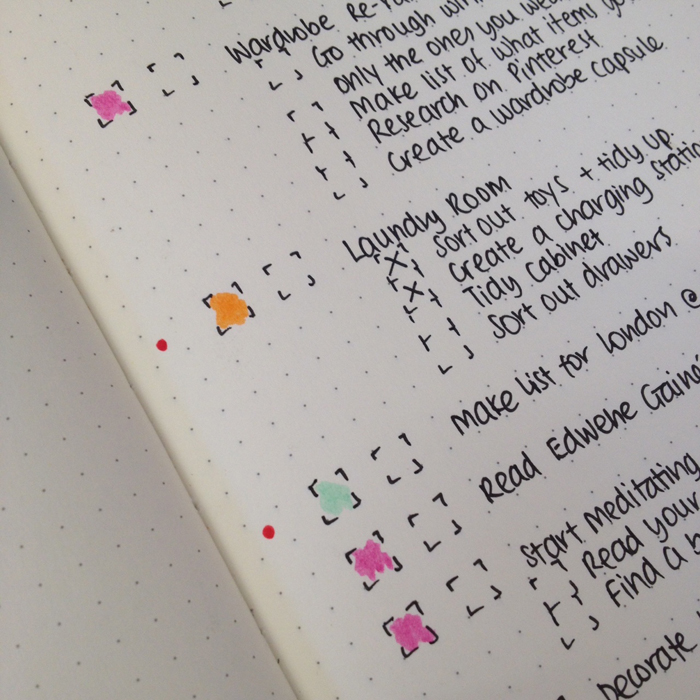 Wardrobe
Go through
only the ones you
Make list of what items
Research on Pinterest
Create a wardrobe capsule
Laundry Room
X Sort out toys + tidy up
X Create a charging
Tidy Cabinet
Sort out drawers
Make list for London @
Read Edwene
Start Meditating
Read your
Find a
Decorate